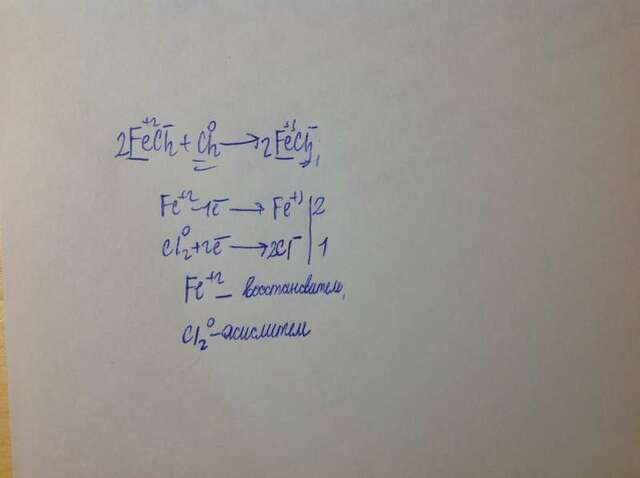 2Fe⁺²Cl₂⁻ + Cl₂⁰ → 2Fe⁺³Cl₃⁻
Fe⁺² -1e⁻ → Fe⁺³ | 2
Cl₂⁰ +2e⁻ → 2Cl⁻ | 1
Fe⁺² – восстановитель,
Cl₂⁰ – окислитель